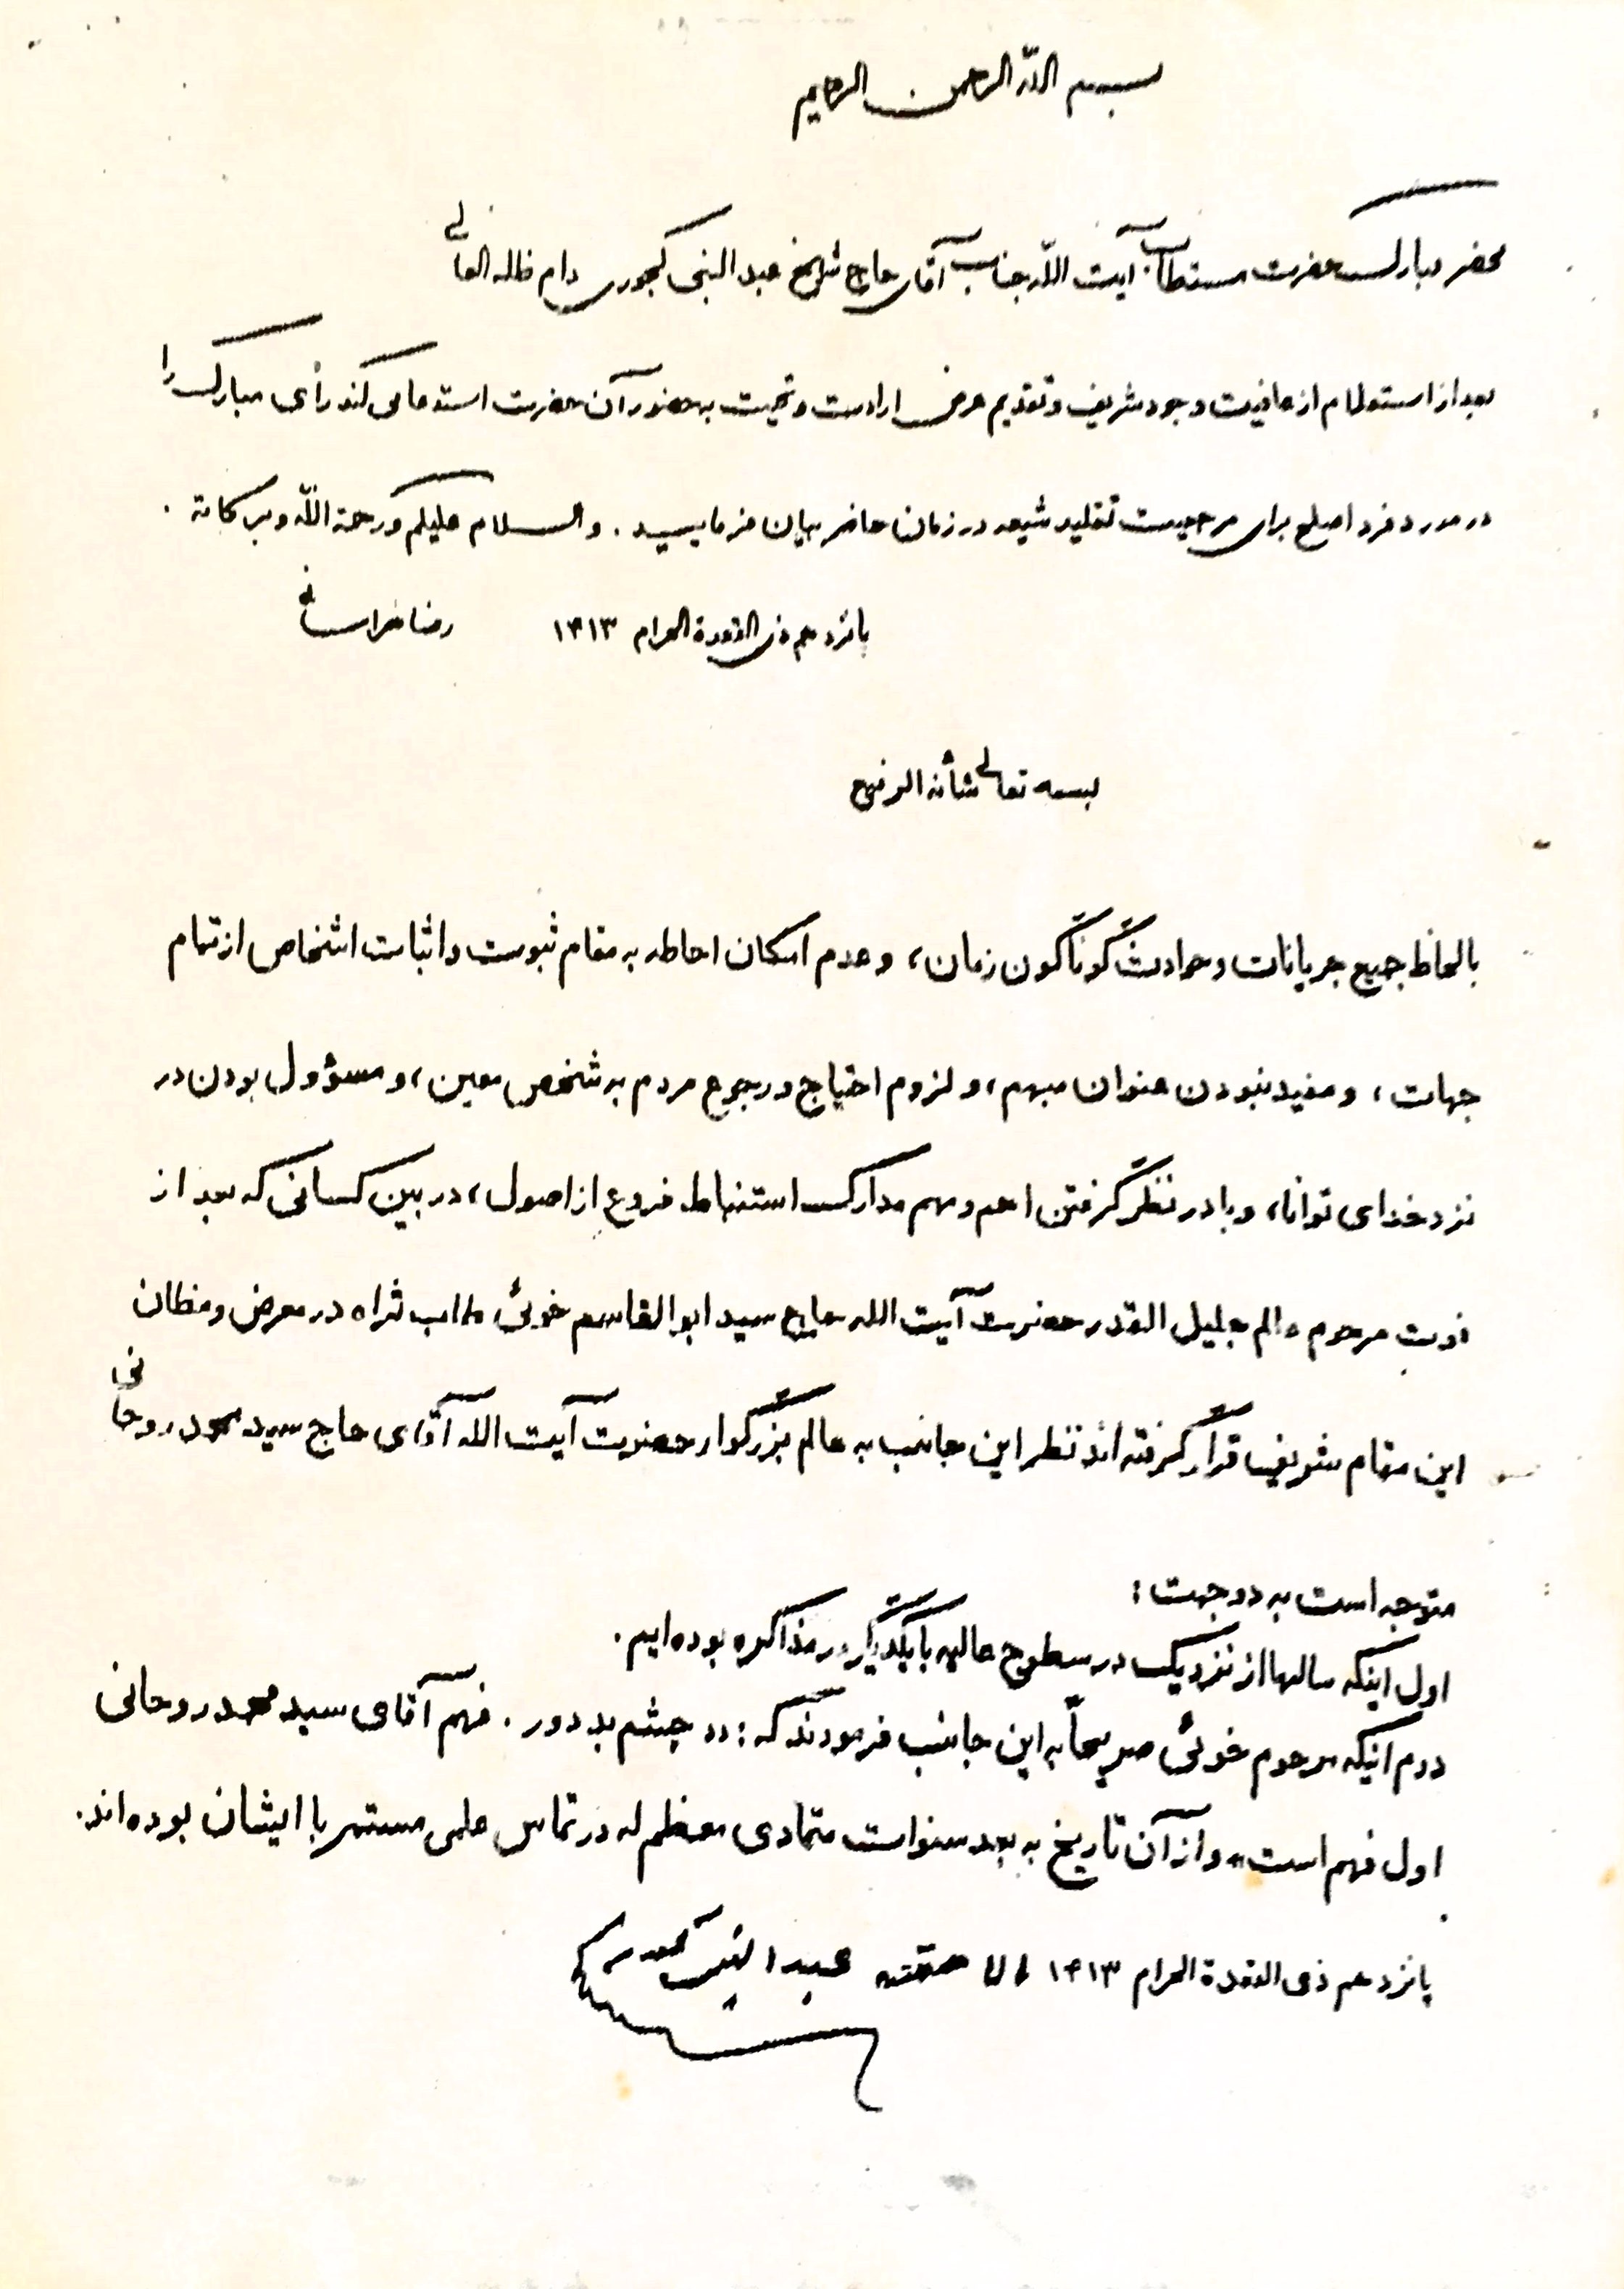 بسم اللّه الرحمن الرحیم
محضر مبارک حضرت مستطاب آیت اللّه جناب آقای حاج شیخ عبد النبی کجوری دام ظله العالی
بعد از استعلام از عافیت وجود شریف و تقدیم عرض ارادت و تحیت به حضور آن حضرت استدعا می کند رأی مبارک را
در مورد فرد اصلح برای مرجعیت تقلید شیعه در زمان حاضر بیان فرمایید . والسلام علیکم ورحمة اللّه وبرکاته .
پانزدهم ذی القعدة الحرام ۱۴۱۳ رضا خراسانی
بسمه تعالی شأنه الرفیع
بالحاظ جمیع جریانات و حوادث گوناگون زمان، و عدم امکان احاطه به مقام ثبوت و اثبات اشخاص از تمام
جهات ، و مفید نبودن عنوان مبهم، و لزوم احتیاج و رجوع مردم به شخص معین، و مسؤول بودن در
نزد خدای توانا، و با در نظر گرفتن اهم و مهم مدارک استنباط فروع از اصول، در بین کسانی که بعد از
فوت مرحوم عالم جلیل القدر حضرت آیت الله حاج سید ابوالقاسم خوئی طاب ثراه در معرض و مظان
این مقام شریف قرار گرفته اند نظر این جانب به عالم بزرگوار حضرت آیت الله آقای حاج سید محمد روحانی
متوجه است به دو جهت :
اول اینکه سالها از نزدیک در سطوح عالیه با یکدیگر در مذاکره بوده ایم .
دوم اینکه مرحوم خوئی صریحاً به این جانب فرمودند که : «چشم بد دور . فهم آقای سید محمد روحانی
اول فهم است» و از آن تاریخ به بعد سنوات متمادی معظم له در تماس علمی مستمر با ایشان بوده اند .
پانزدهم ذی القعدة الحرام ۱۴۱۳ عبد النبی کجوری